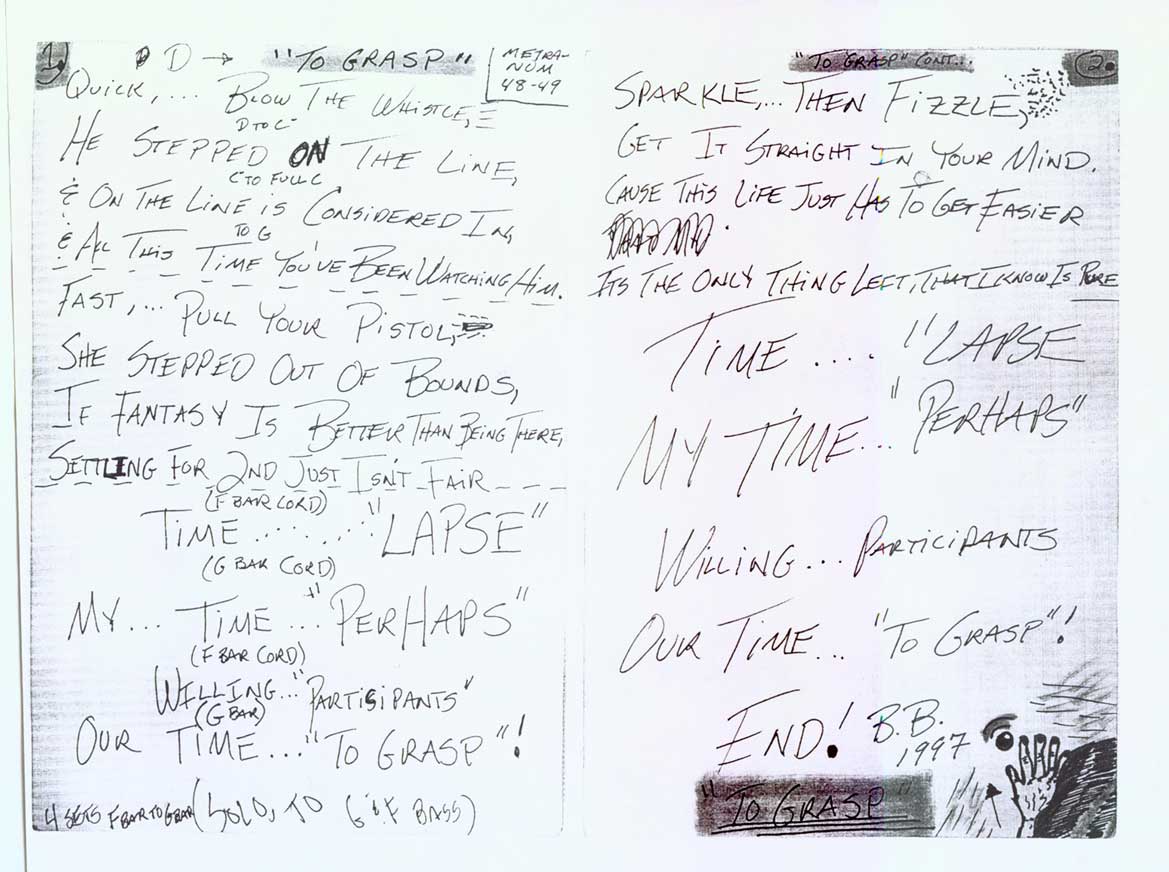 1.
D → "TO GRASP"
METRA-
NUM
48-49
QUICK,... BLOW THE WHISTLE,
D TO C
HE STEPPED ON THE LINE,
C TO FULL C
& ON THE LINE IS CONSIDERED IN,
TO G
& ALL THIS TIME YOU'VE BEEN WATCHING HIM.
FAST,... PULL YOUR PISTOL,
SHE STEPPED OUT OF BOUNDS,
IF FANTASY IS BETTER THAN BEING THERE,
SETTLING FOR 2ND JUST ISN'T FAIR
(F BAR CORD)
TIME ........ "LAPSE"
(G BAR CORD)
MY... TIME ... "PERHAPS"
(F BAR CORD)
WILLING... "PARTISIPANTS"
(G BAR)
OUR TIME... "TO GRASP"!
4 SETS F BAR TO G BAR (SOLO, TO G & F BASS)
"TO GRASP" CONT...
2.
SPARKLE,... THEN FIZZLE,
GET IT STRAIGHT IN YOUR MIND.
CAUSE THIS LIFE JUST HAS TO GET EASIER
ITS THE ONLY THING LEFT, THAT I KNOW IS PURE
TIME .... "LAPSE
MY TIME... "PERHAPS"
WILLING... PARTICIPANTS
OUR TIME... "TO GRASP"!
END! B.B.
1997
"TO GRASP"